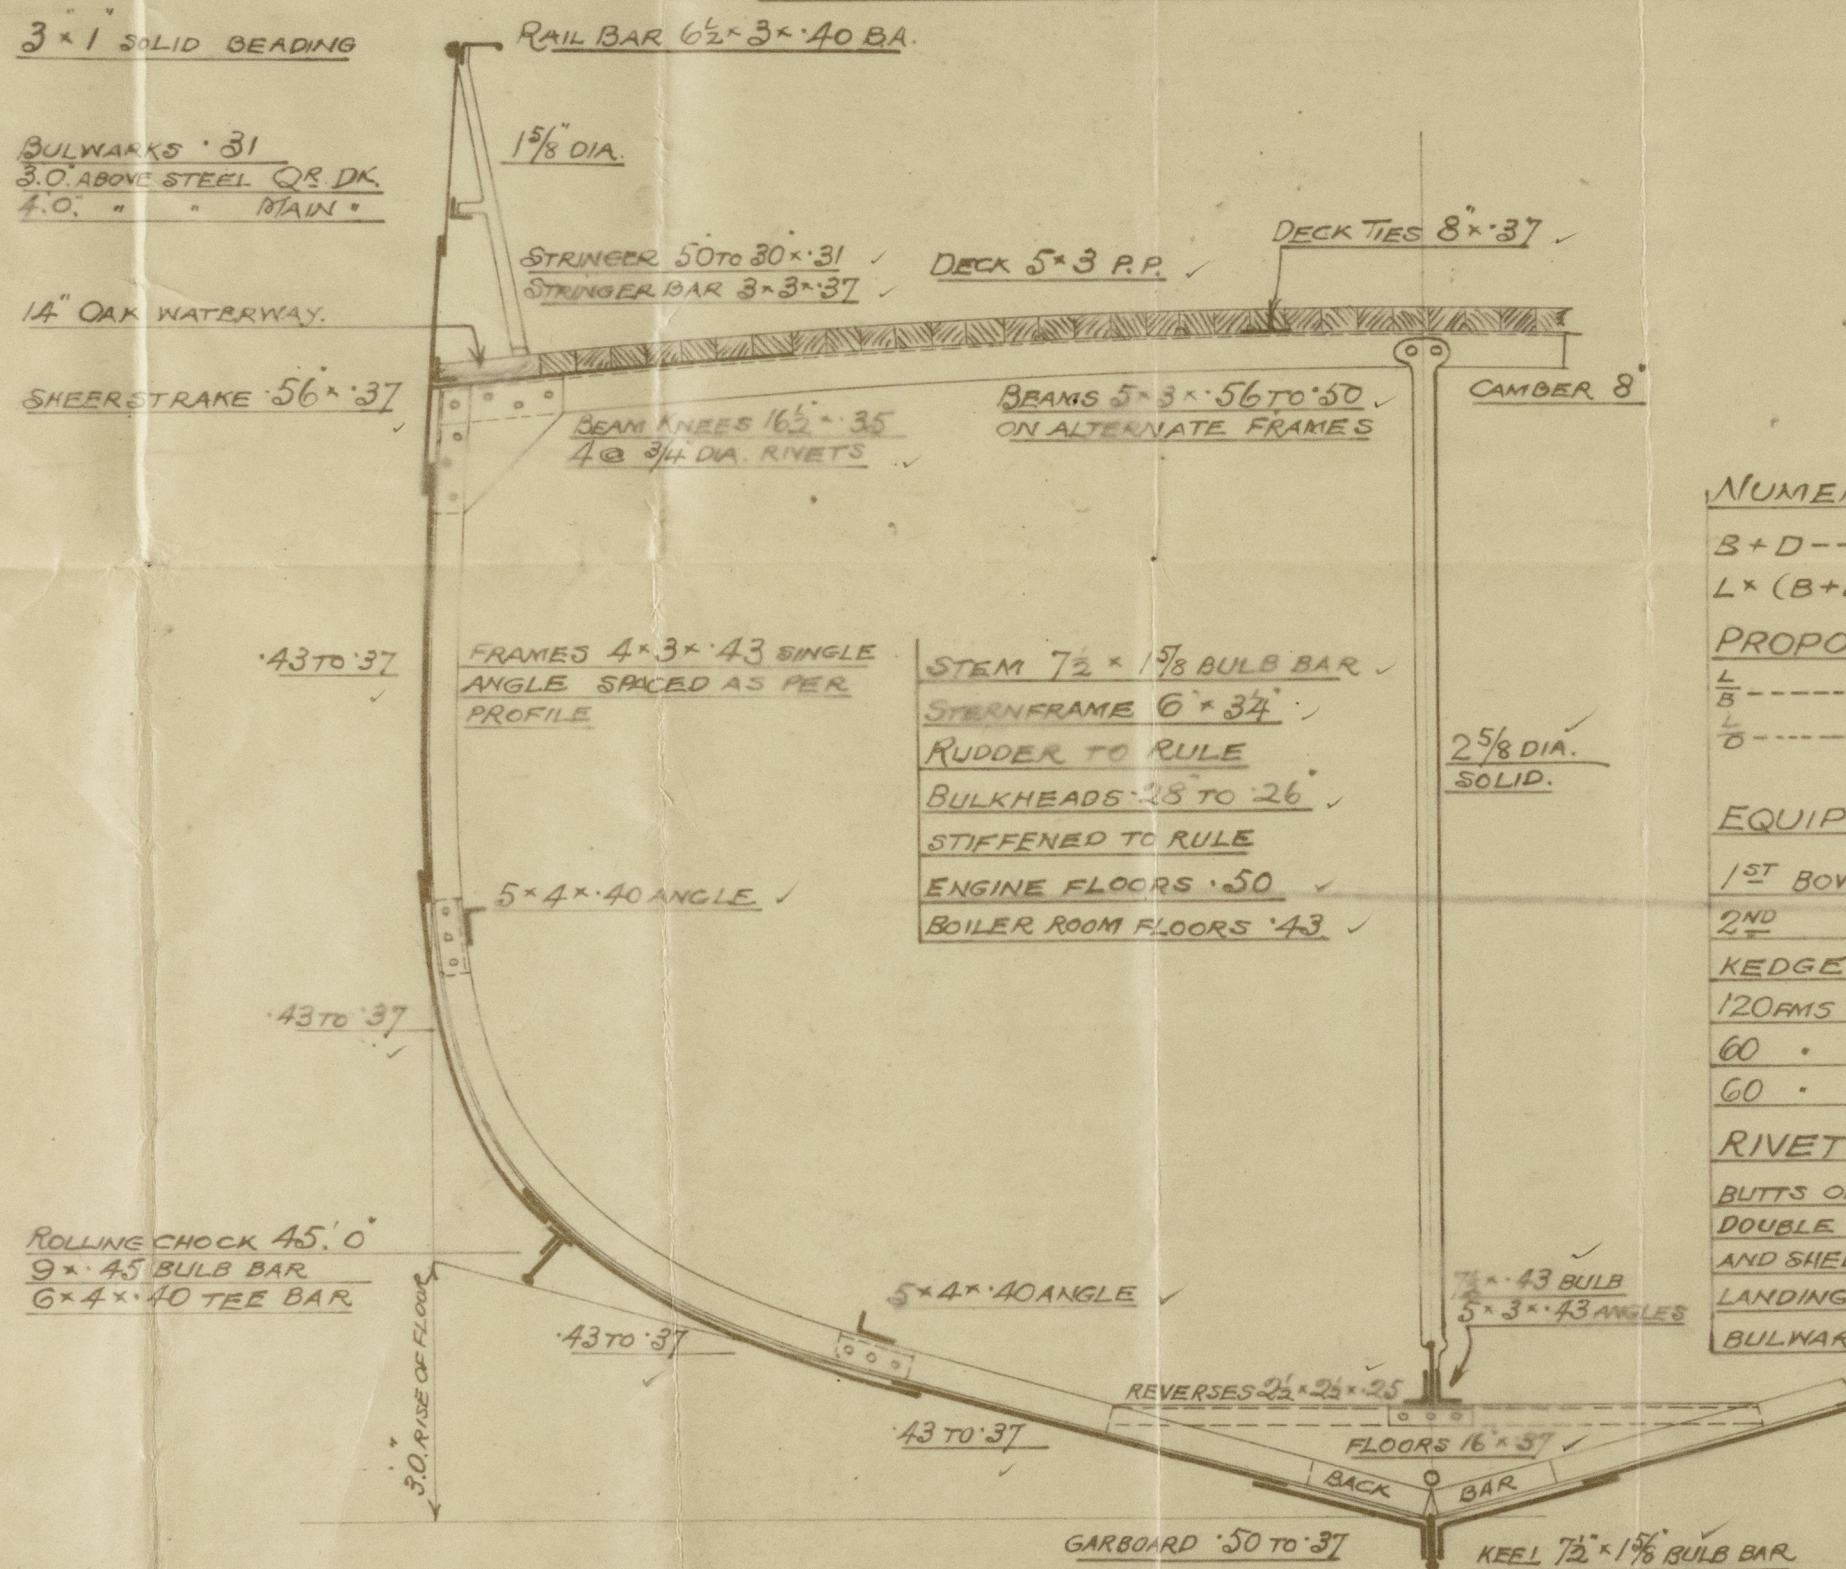 3" × 1" SOLID BEADING
RAIL BAR 6½ × 3 × ·40 B.A.
BULWARKS ·31
3'.0" ABOVE STEEL QR. DK.
4'.0" " " MAIN "
1⅝" DIA.
STRINGER 50" TO 30" × ·31 ✓
STRINGER BAR 3 × 3 × ·37 ✓
DECK 5 × 3 P.P. ✓
DECK TIES 8" × ·37 ✓
14" OAK WATERWAY.
SHEERSTRAKE ·56 × ·37 ✓
BEAM KNEES 16½" × ·35
4 @ ¾" DIA. RIVETS ✓
BEAMS 5 × 3 × ·56 TO ·50 ✓
ON ALTERNATE FRAMES
CAMBER 8"
·43 TO ·37 ✓
FRAMES 4 × 3 × ·43 SINGLE
ANGLE SPACED AS PER
PROFILE
STEM 7½ × 1⅝ BULB BAR ✓
STERNFRAME 6" × 3¼" ✓
RUDDER TO RULE
BULKHEADS ·28" TO ·26" ✓
STIFFENED TO RULE
ENGINE FLOORS ·50 ✓
BOILER ROOM FLOORS ·43 ✓
2⅝ DIA. ✓
SOLID.
5 × 4 × ·40 ANGLE ✓
·43 TO ·37 ✓
ROLLING CHOCK 45'.0"
9 × ·45 BULB BAR
6 × 4 × ·40 TEE BAR
3'.0" RISE OF FLOOR
·43 TO ·37 ✓
5 × 4 × ·40 ANGLE ✓
7½ × ·43 BULB ✓
5 × 3 × ·43 ANGLES
REVERSES 2½ × 2½ × ·25 ✓
·43 TO ·37 ✓
FLOORS 16" × ·37 ✓
BACK BAR
GARBOARD ·50 TO ·37
KEEL 7½" × 1⅝" BULB BAR ✓
NUMER
B + D --
L × (B +
PROPO
L/B -----
L/D -----
EQUIP
1ST BOW
2ND
KEDGE
120 FMS
60 "
60 "
RIVET
BUTTS O
DOUBLE
AND SHE
LANDING
BULWAR